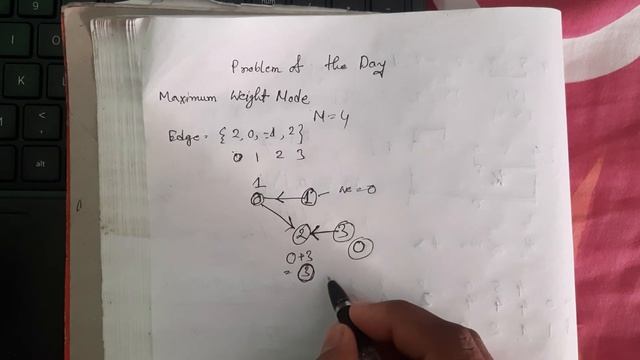 Problem of the Day
Maximum Weight Node
N = 4
Edge = {2, 0, -1, 2}
0 1 2 3
1
0 1 we = 0
2 3
0
0+3
= 3
I
O
K
L
M
< ,
alt